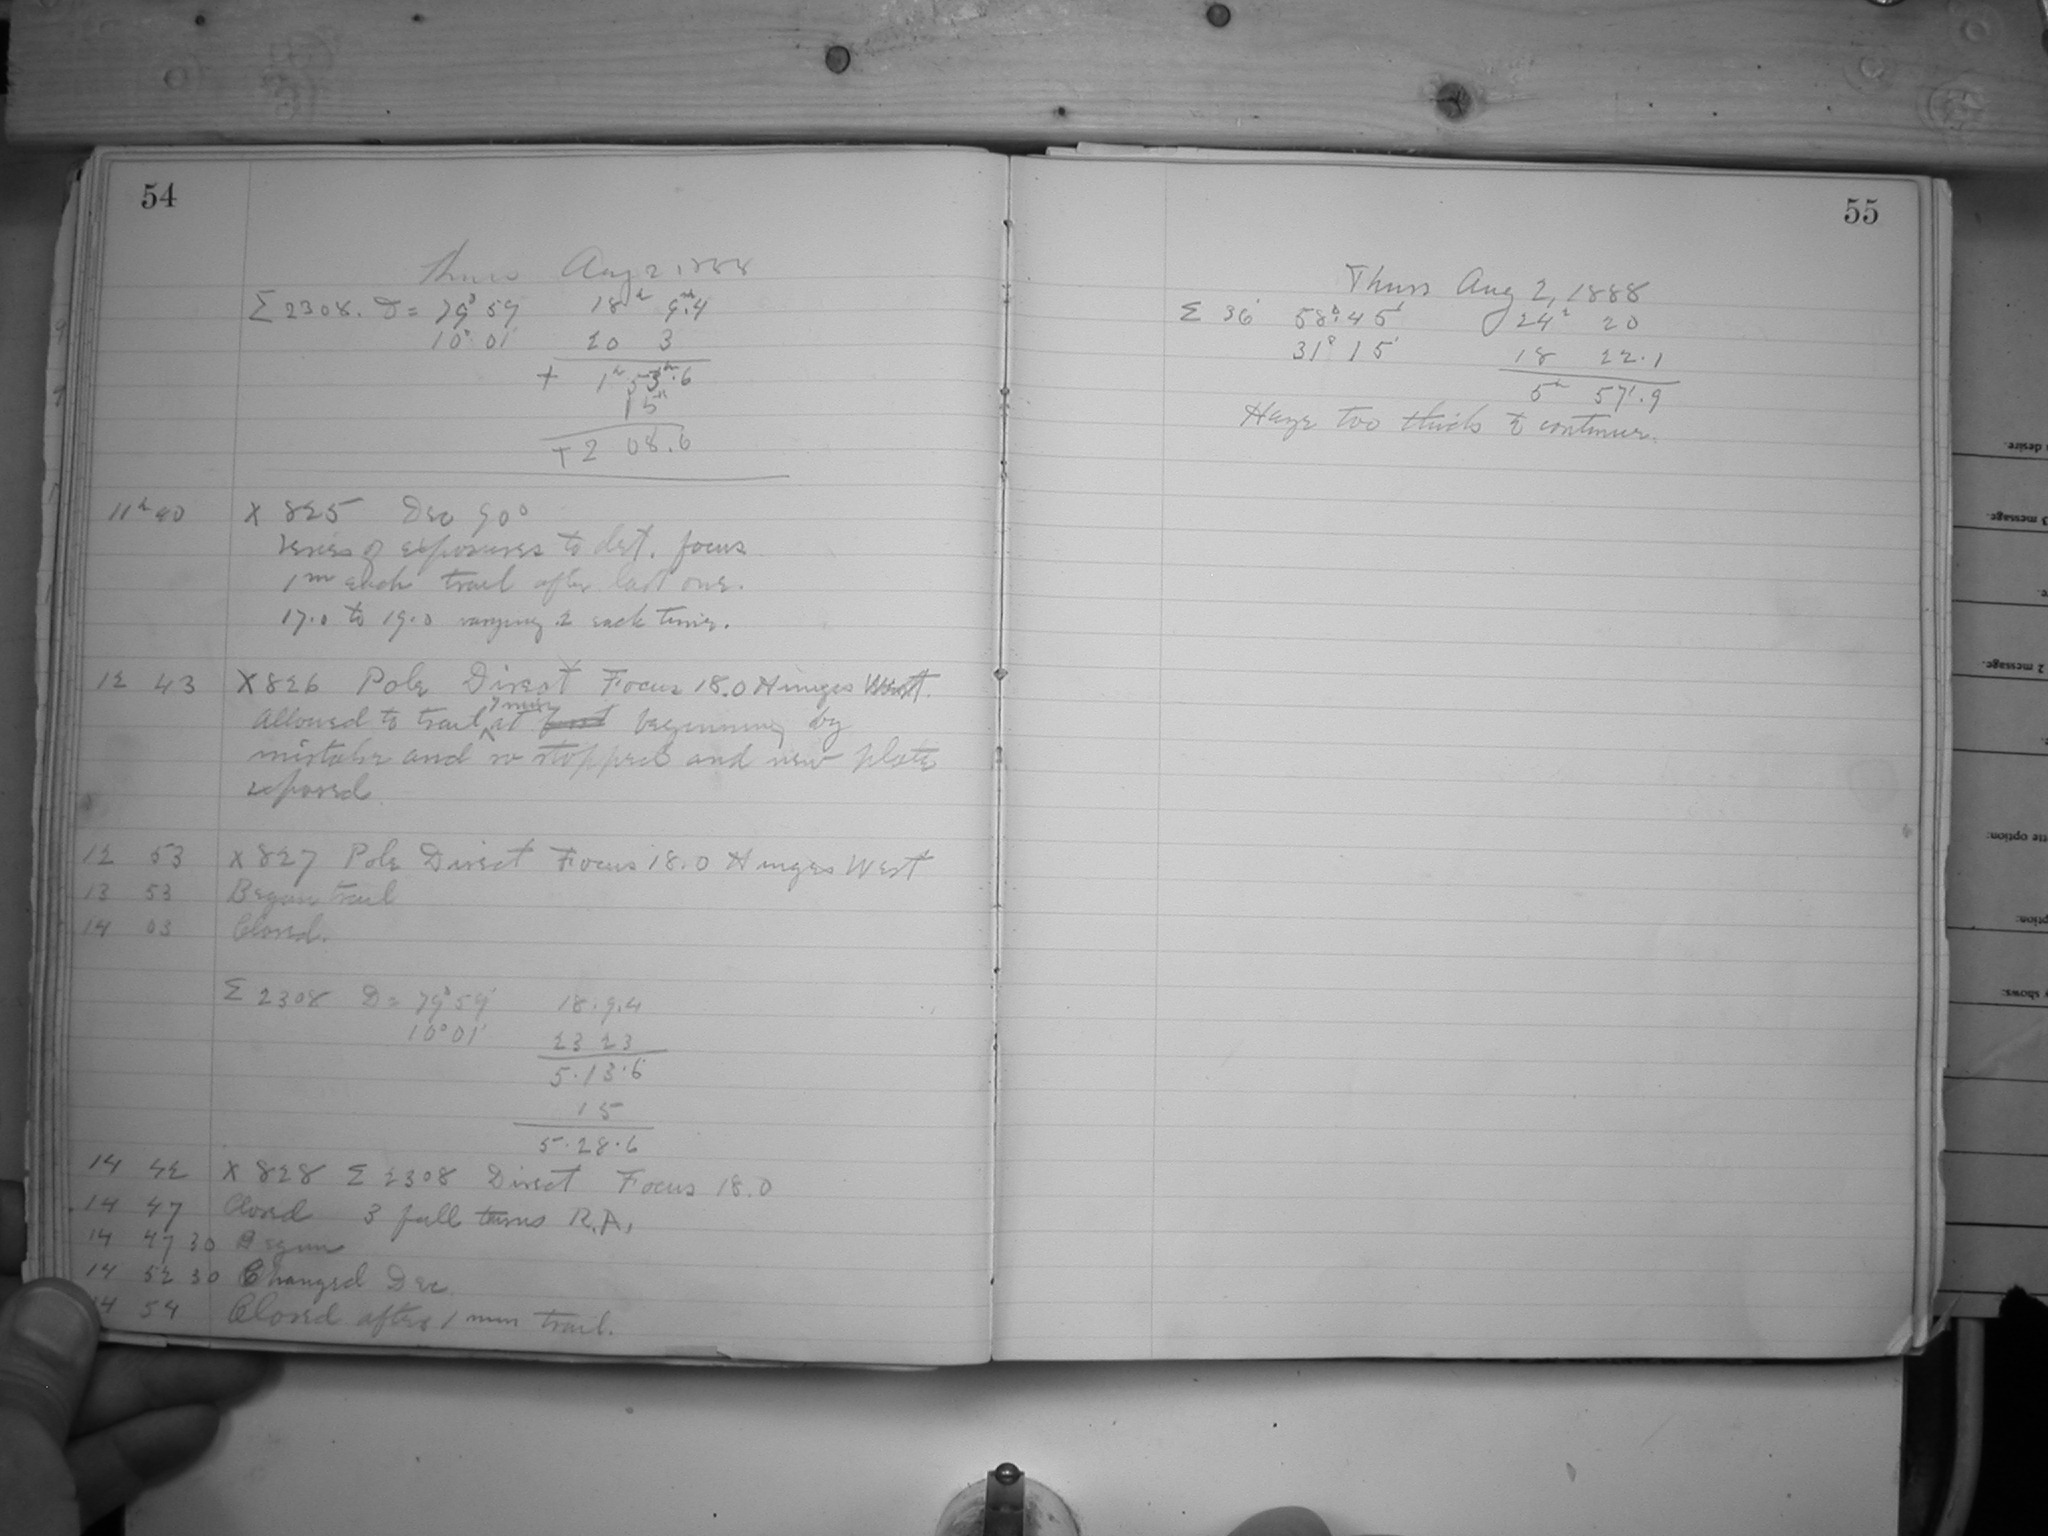 54
Thurs Aug 2, 1888
Σ 2308. D = 79° 59' 18h 9m.4
10° 01' 20 3
+ 1h 53m.6
15m
+ 2 08.6
11h 40 X 825 Dec 90°
Series of exposures to det. focus
1m each trail after last one.
17.0 to 19.0 varying .2 each time.
12 43 X 826 Pole Direct Focus 18.0 Hinges West.
7 min
Allowed to trail ^ at beginning by
mistake and so stopped and new plate
exposed.
12 53 X 827 Pole Direct Focus 18.0 Hinges West
13 53 Began trail
14 03 Closed.
Σ 2308 D = 79° 59' 18.9.4
10° 01' 23 23
5.13.6
15
5.28.6
14 42 X 828 Σ 2308 Direct Focus 18.0
14 47 Closed 3 full turns R.A.
14 47 30 Began
14 52 30 Changed Dec.
14 54 Closed after 1 min trail.
55
Thurs Aug 2, 1888
Σ 36 58° 45' 24h 20
31° 15' 18 22.1
5h 57.9
Haze too thick to continue.
desire.
3 message.
2 message.
option:
shows: